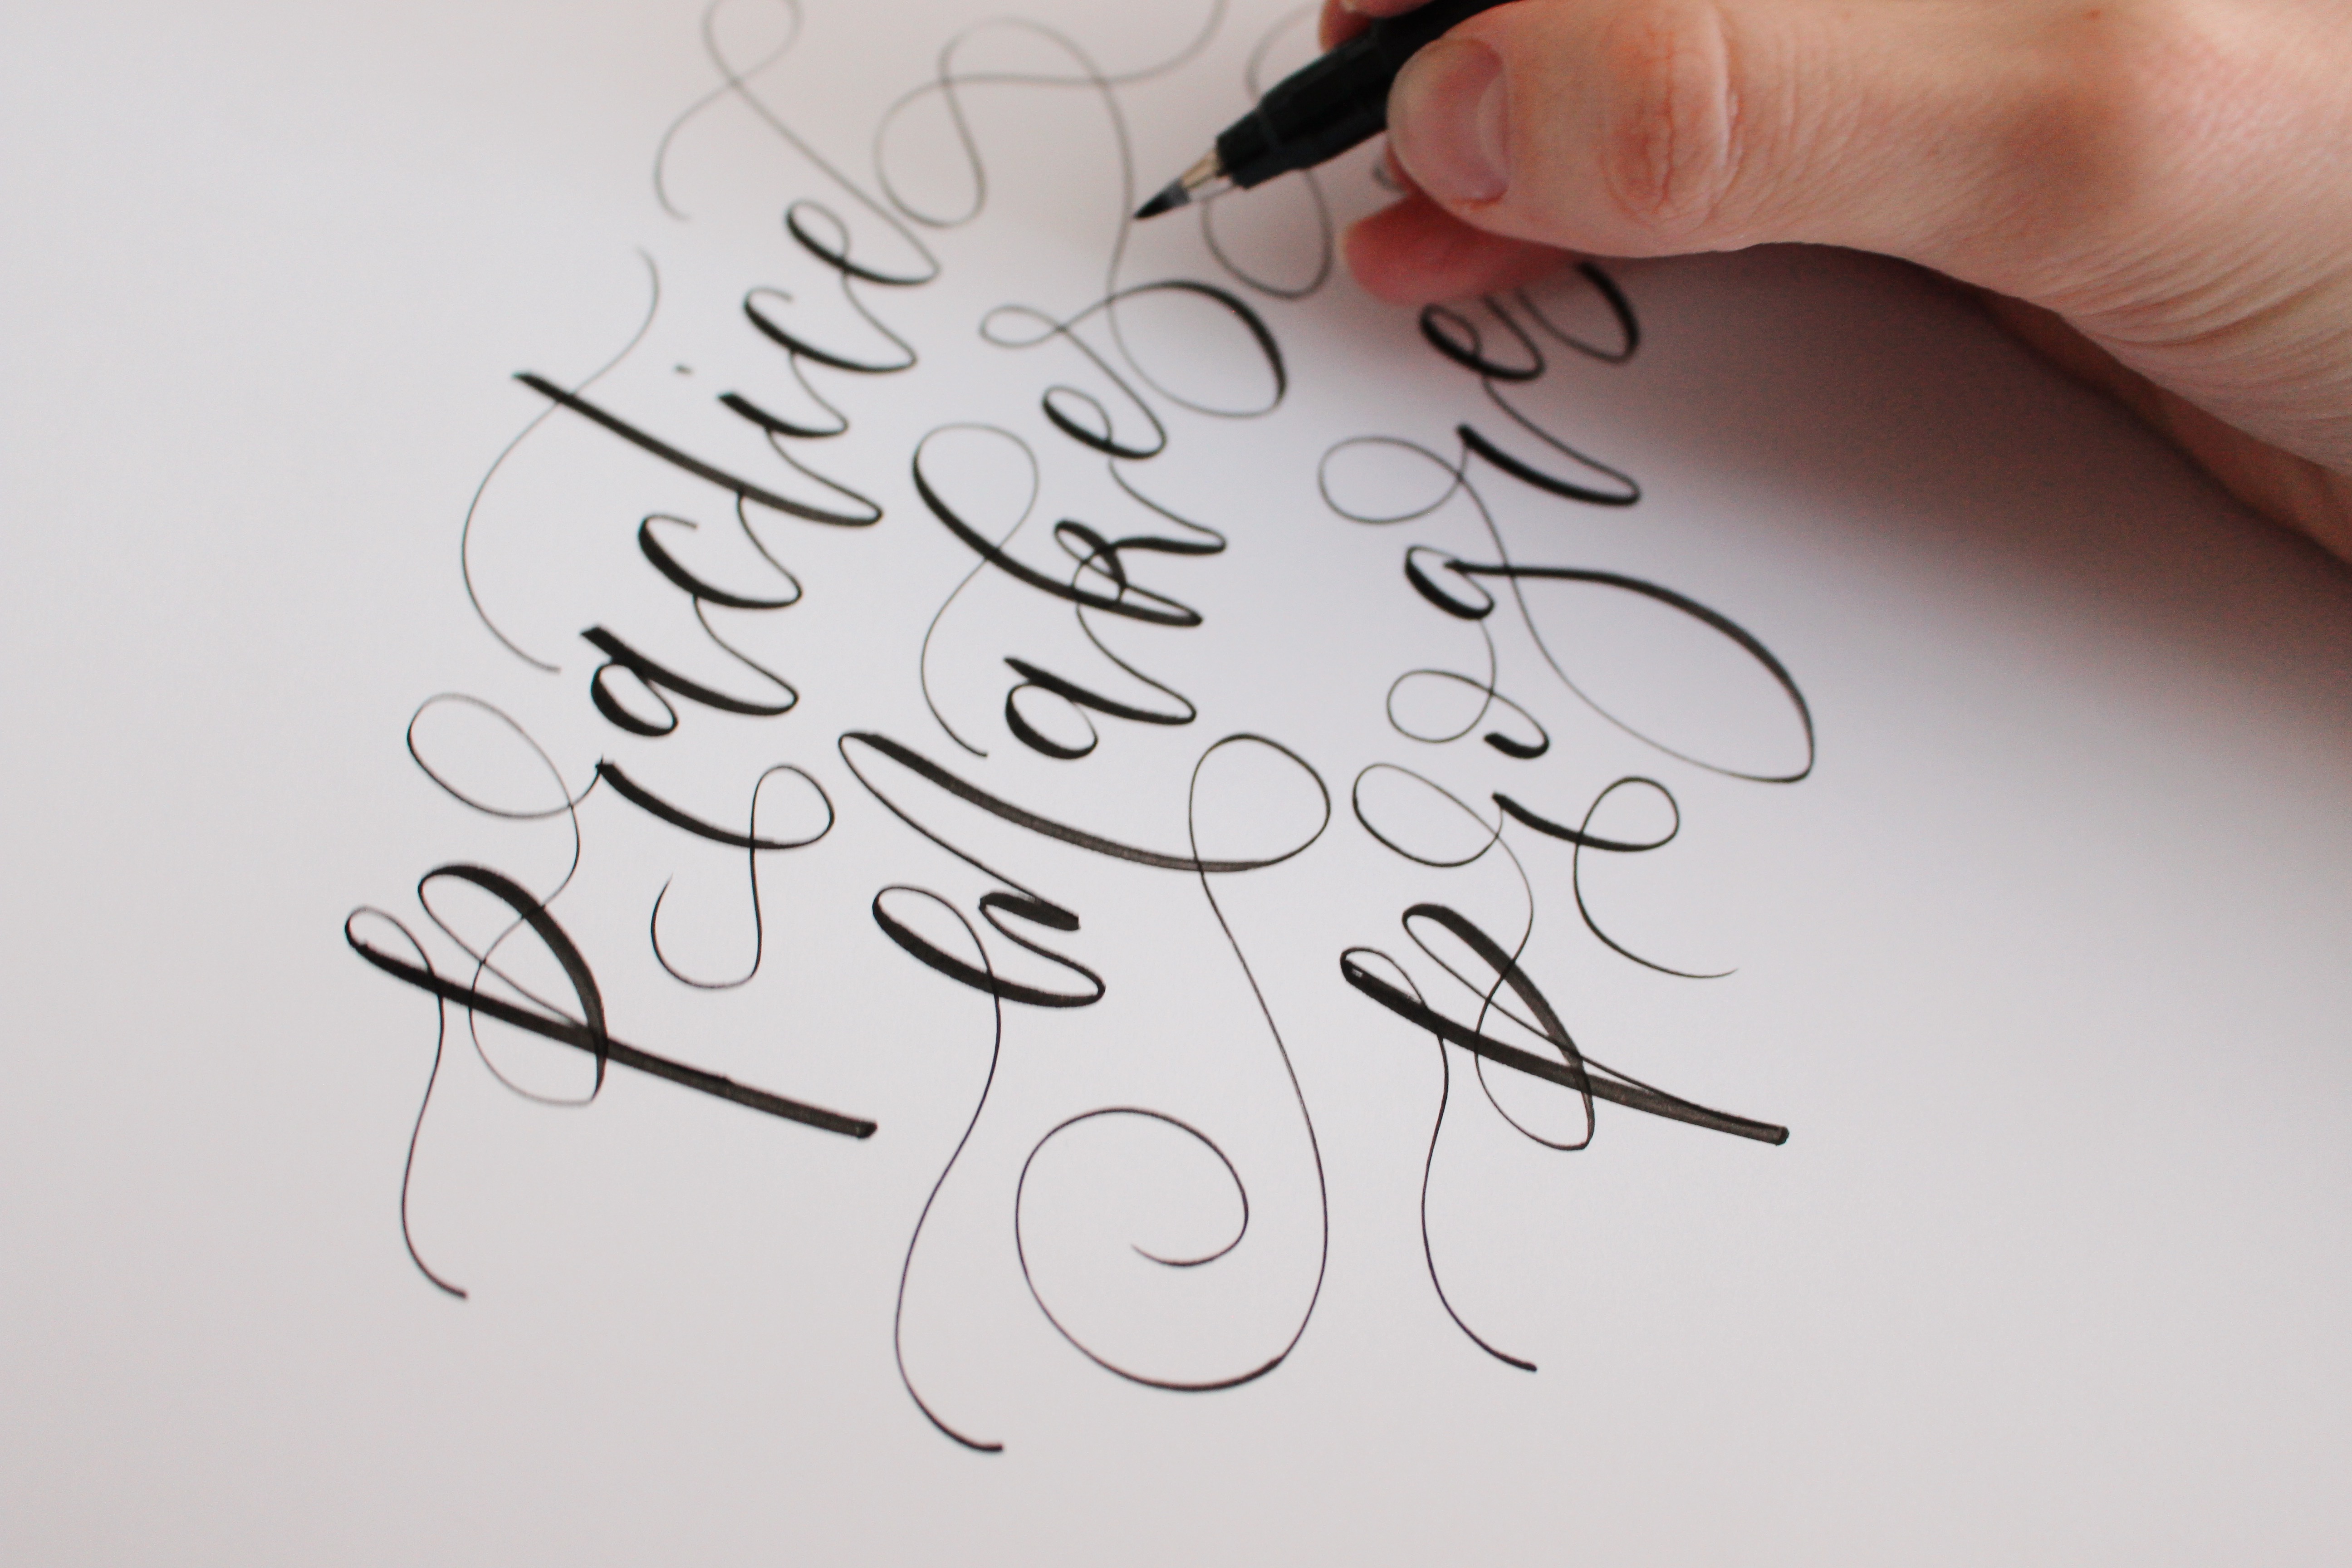 practice
makes
progres